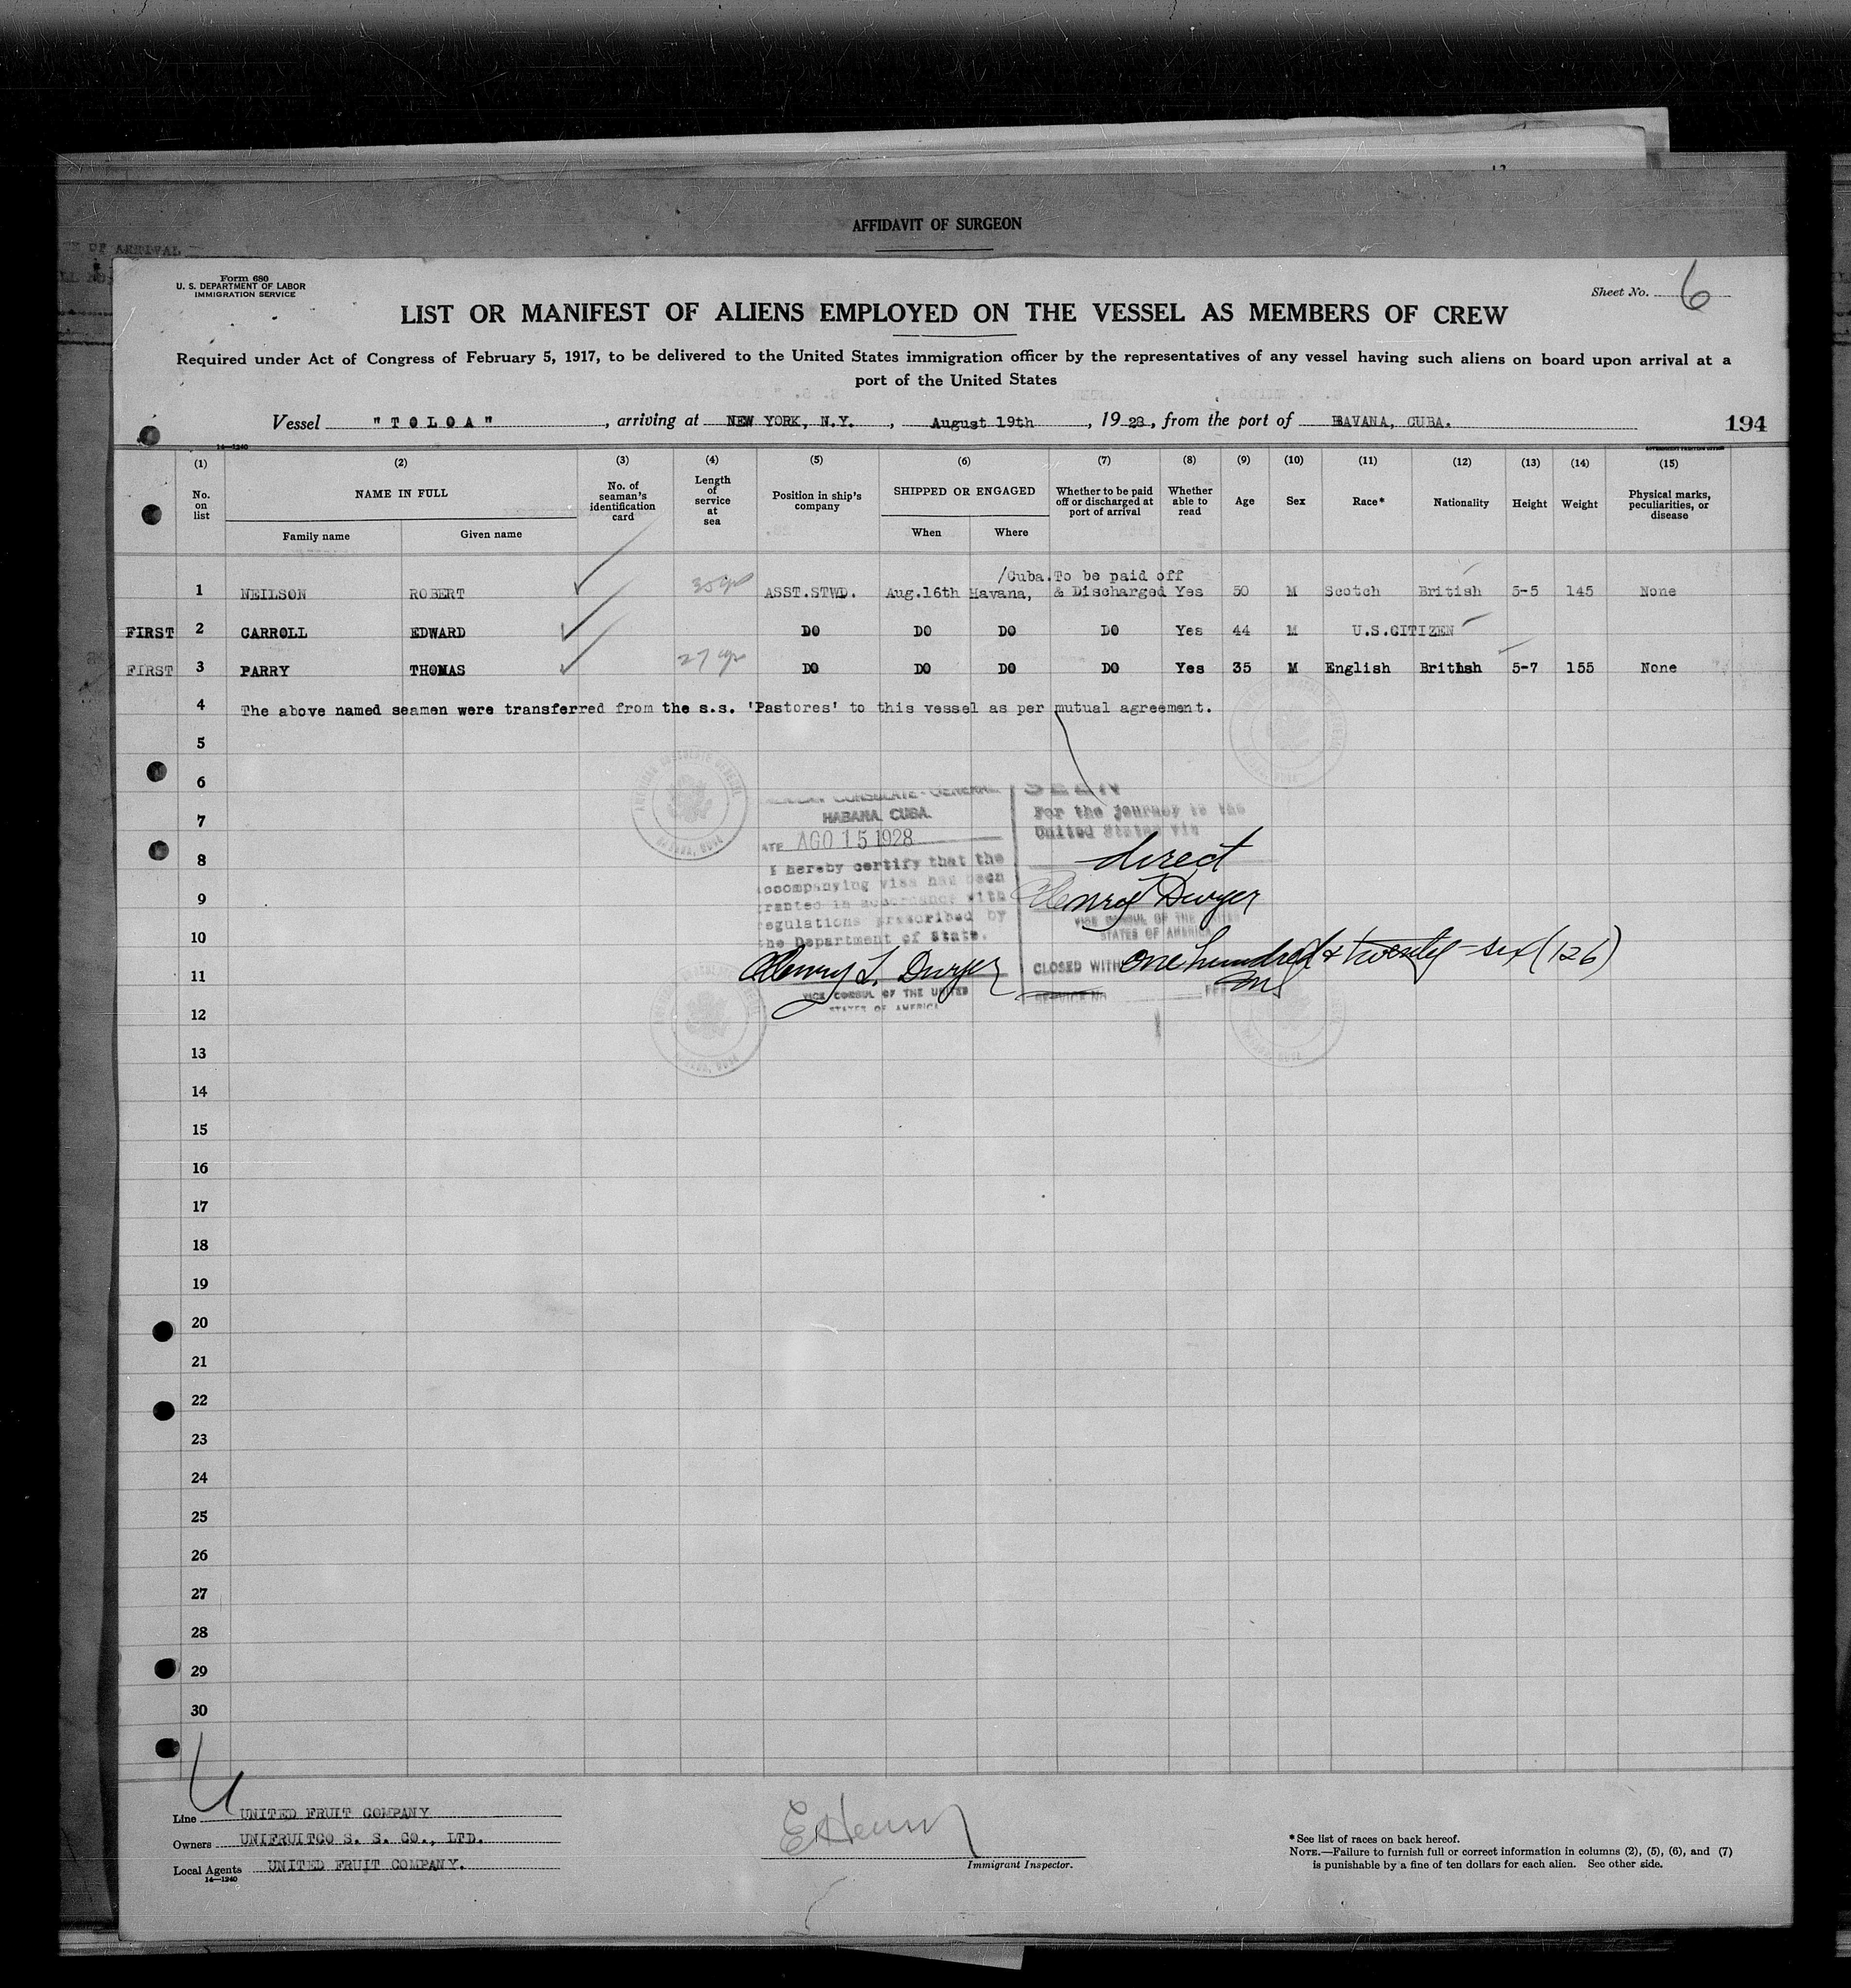 AFFIDAVIT OF SURGEON
OF ARRIVAL
Form 680
U. S. DEPARTMENT OF LABOR
IMMIGRATION SERVICE
Sheet No. 6
LIST OR MANIFEST OF ALIENS EMPLOYED ON THE VESSEL AS MEMBERS OF CREW
Required under Act of Congress of February 5, 1917, to be delivered to the United States immigration officer by the representatives of any vessel having such aliens on board upon arrival at a
port of the United States
Vessel "TOLOA", arriving at NEW YORK, N.Y., August 19th, 1928, from the port of HAVANA, CUBA. 194
14—1240
(1) (2) (3) (4) (5) (6) (7) (8) (9) (10) (11) (12) (13) (14) (15)
No. on list NAME IN FULL No. of seaman's identification card Length of service at sea Position in ship's company SHIPPED OR ENGAGED Whether to be paid off or discharged at port of arrival Whether able to read Age Sex Race* Nationality Height Weight Physical marks, peculiarities, or disease
Family name Given name When Where
/Cuba. To be paid off
1 NEILSON ROBERT 35 yrs ASST.STWD. Aug.16th Havana, & Discharged Yes 50 M Scotch British 5-5 145 None
FIRST 2 CARROLL EDWARD DO DO DO DO Yes 44 M U.S.CITIZEN
FIRST 3 PARRY THOMAS 27 yrs DO DO DO DO Yes 35 M English British 5-7 155 None
4 The above named seamen were transferred from the s.s. 'Pastores' to this vessel as per mutual agreement.
5
6
7
8
9
10
11
12
13
14
15
16
17
18
19
20
21
22
23
24
25
26
27
28
29
30
AMERICAN CONSULATE-GENERAL
HABANA, CUBA.
DATE AGO 15 1928
I hereby certify that the
accompanying visa has been
granted in accordance with
regulations prescribed by
the Department of State.
Henry L. Dwyer
VICE CONSUL OF THE UNITED
STATES OF AMERICA
SEEN
For the journey to the
United States via
direct
Henry Dwyer
VICE CONSUL OF THE UNITED
STATES OF AMERICA
CLOSED WITH one hundred & twenty-six (126)
SERVICE NO.
Line UNITED FRUIT COMPANY
Owners UNIFRUITCO S. S. CO., LTD.
Local Agents UNITED FRUIT COMPANY.
14—1240
Immigrant Inspector.
*See list of races on back hereof.
NOTE.—Failure to furnish full or correct information in columns (2), (5), (6), and (7)
is punishable by a fine of ten dollars for each alien. See other side.